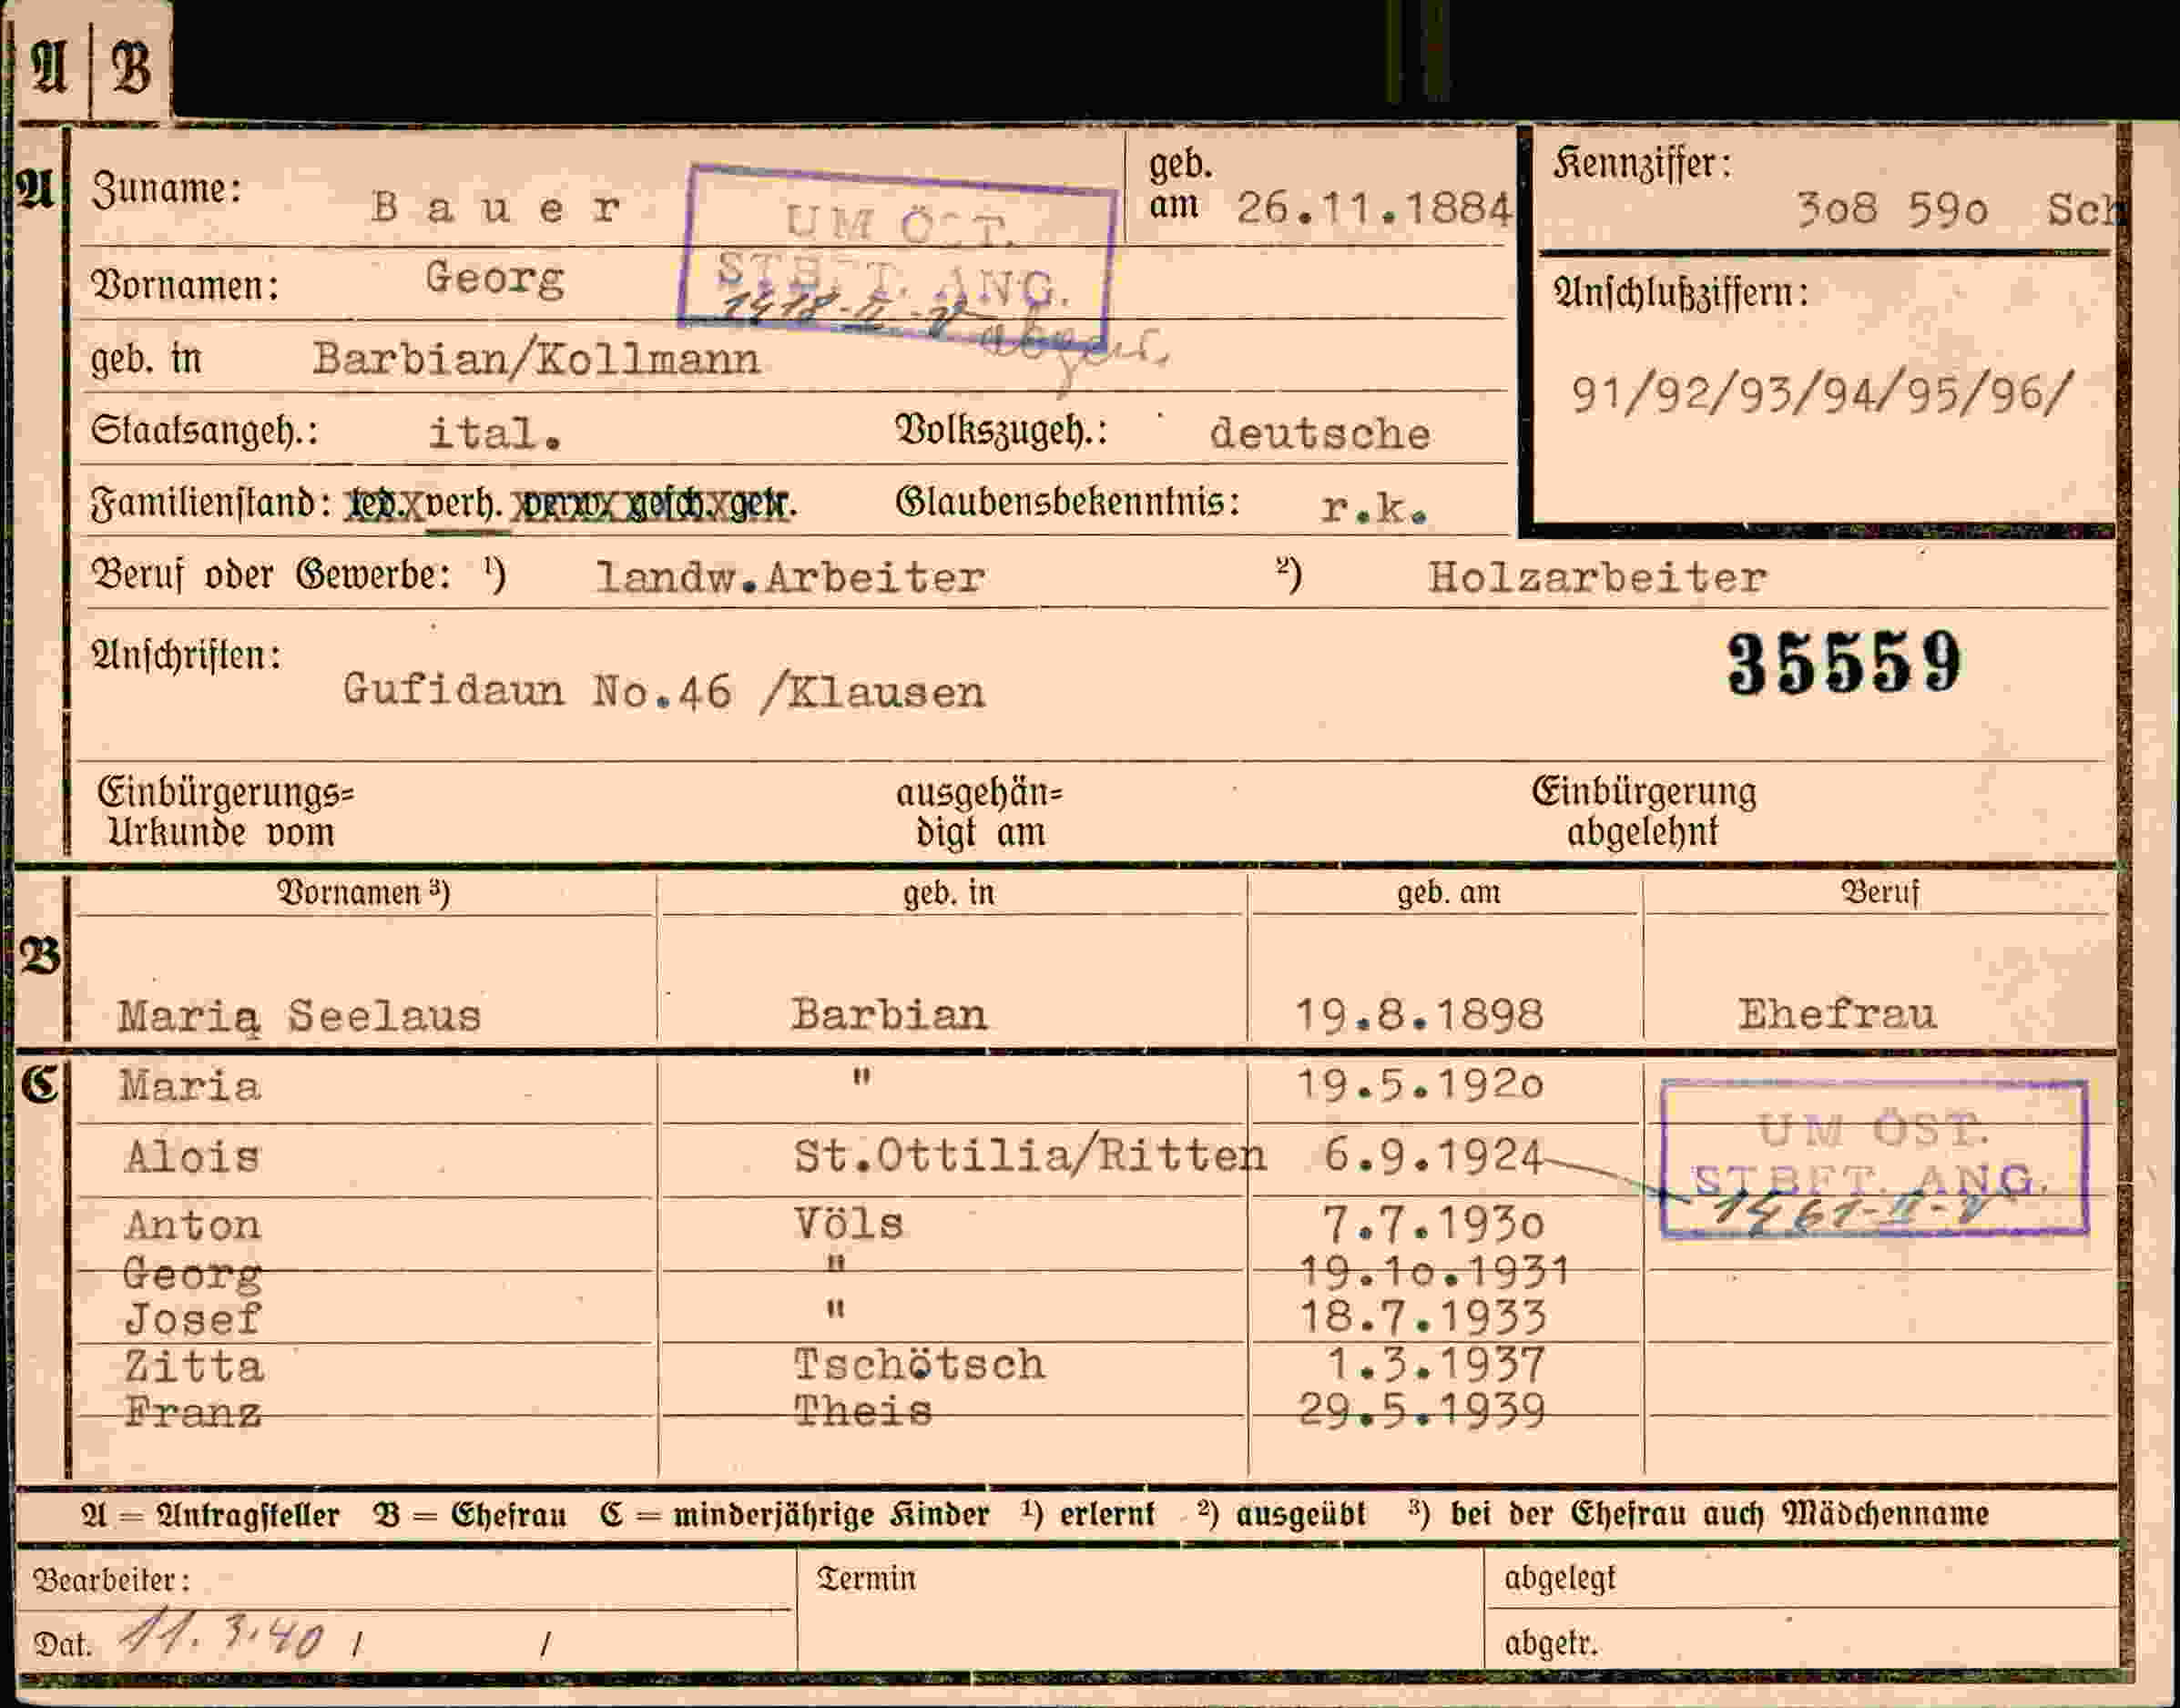 A | B
A Zuname: Bauer geb. am 26.11.1884 Kennziffer: 3o8 59o Sch
UM ÖST.
STBFT. ANG.
1418-II-V
Vornamen: Georg Anschlußziffern:
geb. in Barbian/Kollmann 91/92/93/94/95/96/
Staatsangeh.: ital. Volkszugeh.: deutsche
Familienstand: led. verh. verw. gesch. getr. Glaubensbekenntnis: r.k.
Beruf oder Gewerbe: ¹) landw.Arbeiter ²) Holzarbeiter
Anschriften: Gufidaun No.46 /Klausen 35559
Einbürgerungs= ausgehän= Einbürgerung
Urkunde vom digt am abgelehnt
Vornamen ³) geb. in geb. am Beruf
B Maria Seelaus Barbian 19.8.1898 Ehefrau
C Maria " 19.5.192o
Alois St.Ottilia/Ritten 6.9.1924
UM ÖST.
STBFT. ANG.
1461-II-V
Anton Völs 7.7.193o
Georg " 19.1o.1931
Josef " 18.7.1933
Zitta Tschötsch 1.3.1937
Franz Theis 29.5.1939
A = Antragsteller B = Ehefrau C = minderjährige Kinder ¹) erlernt ²) ausgeübt ³) bei der Ehefrau auch Mädchenname
Bearbeiter: Termin abgelegt
Dat. 11.3.40 / / abgetr.